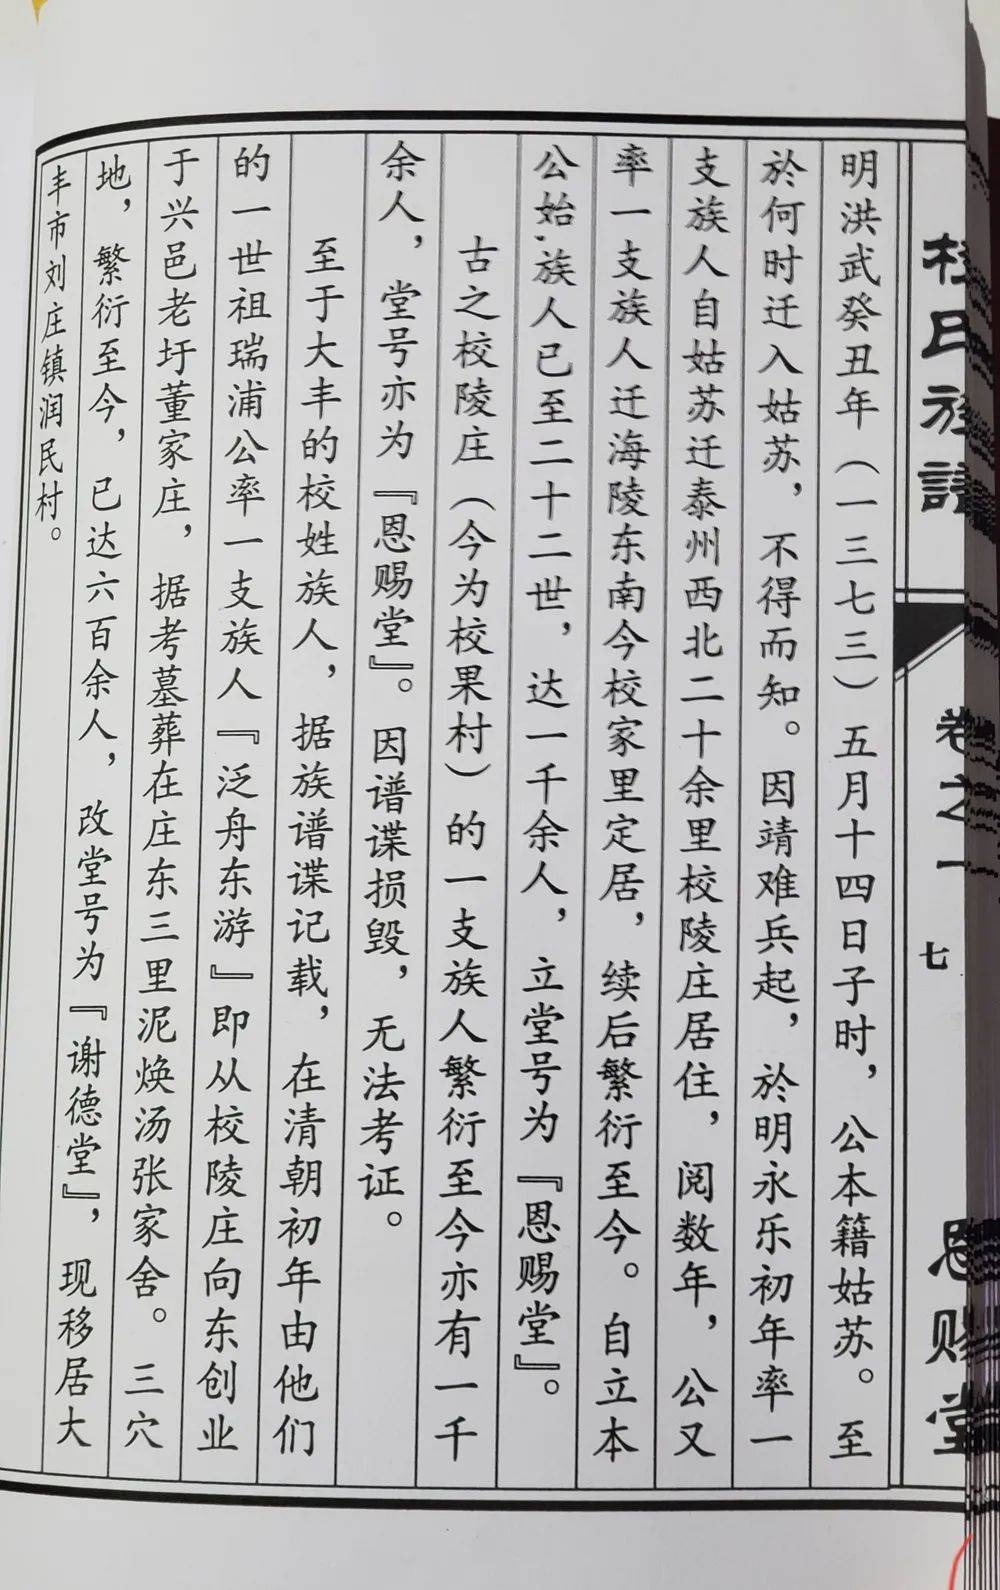 校氏族譜
卷之一
七
恩赐堂
明洪武癸丑年（一三七三）五月十四日子时，公本籍姑苏。至
於何时迁入姑苏，不得而知。因靖难兵起，於明永乐初年率一
支族人自姑苏迁泰州西北二十余里校陵庄居住，阅数年，公又
率一支族人迁海陵东南今校家里定居，续后繁衍至今。自立本
公始，族人已至二十二世，达一千余人，立堂号为『恩赐堂』。
古之校陵庄（今为校果村）的一支族人繁衍至今亦有一千
余人，堂号亦为『恩赐堂』。因谱谍损毁，无法考证。
至于大丰的校姓族人，据族谱谍记载，在清朝初年由他们
的一世祖瑞浦公率一支族人『泛舟东游』即从校陵庄向东创业
于兴邑老圩董家庄，据考墓葬在庄东三里泥焕汤张家舍。三穴
地，繁衍至今，已达六百余人，改堂号为『谢德堂』，现移居大
丰市刘庄镇润民村。